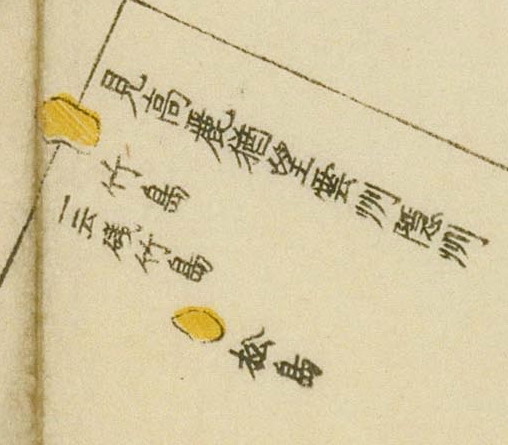 見高麗猶望雲州隱州
竹島
一云磯竹島
松島